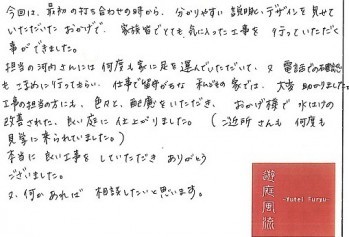 今回は、最初の打ち合わせの時から、分かりやすい説明、デザインを見せて
いただいたおかげで、家族皆でとても気に入った工事を行っていただく
事ができました。
担当の河内さんには何度も家に足を運んでいただいて、又、電話での確認
もこまめに行ってもらい、仕事で留守がちな私どもの家では、大変助かりました。
工事の担当の方にも、色々と、配慮をいただき、おかげ様で水はけの
改善された、良い庭に仕上がりました。(ご近所さんも何度も
見学に来られていました。)
本当に良い工事をしていただきありがとう
ございました。
又、何かあれば相談したいと思います。
遊庭風流
-Yutei Furyu-